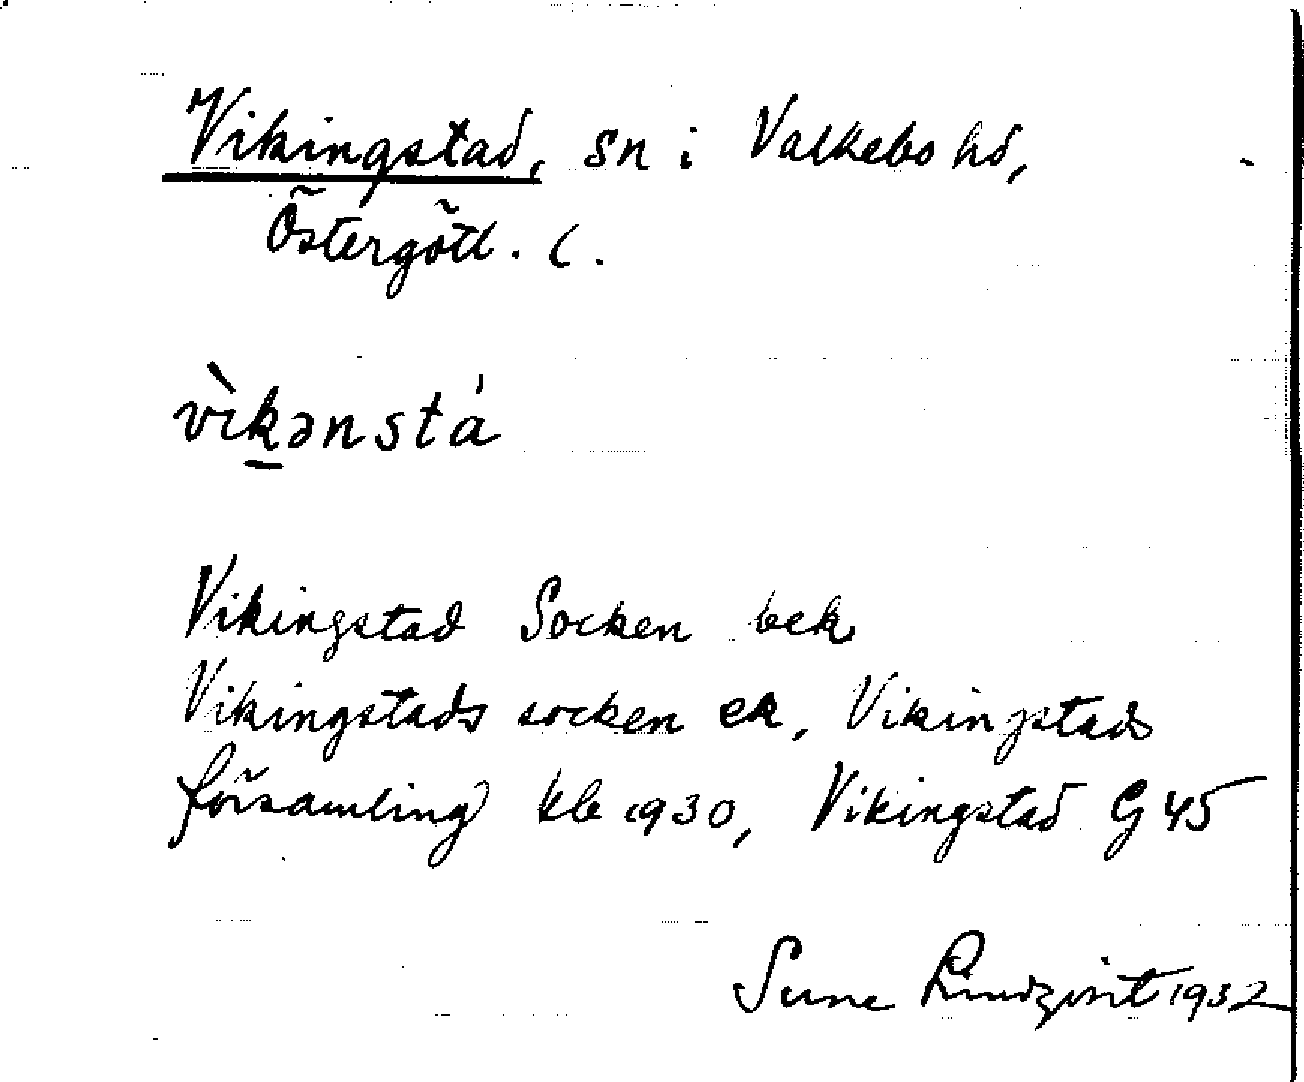 Vikingstad, sn i Valkebo hd,
Östergötl. l.
vìkənstá
Vikingstad Socken bek
Vikingstads socken ek, Vikingstads
församling kb 1930, Vikingstad G 45
Sune Lindqvist 1932